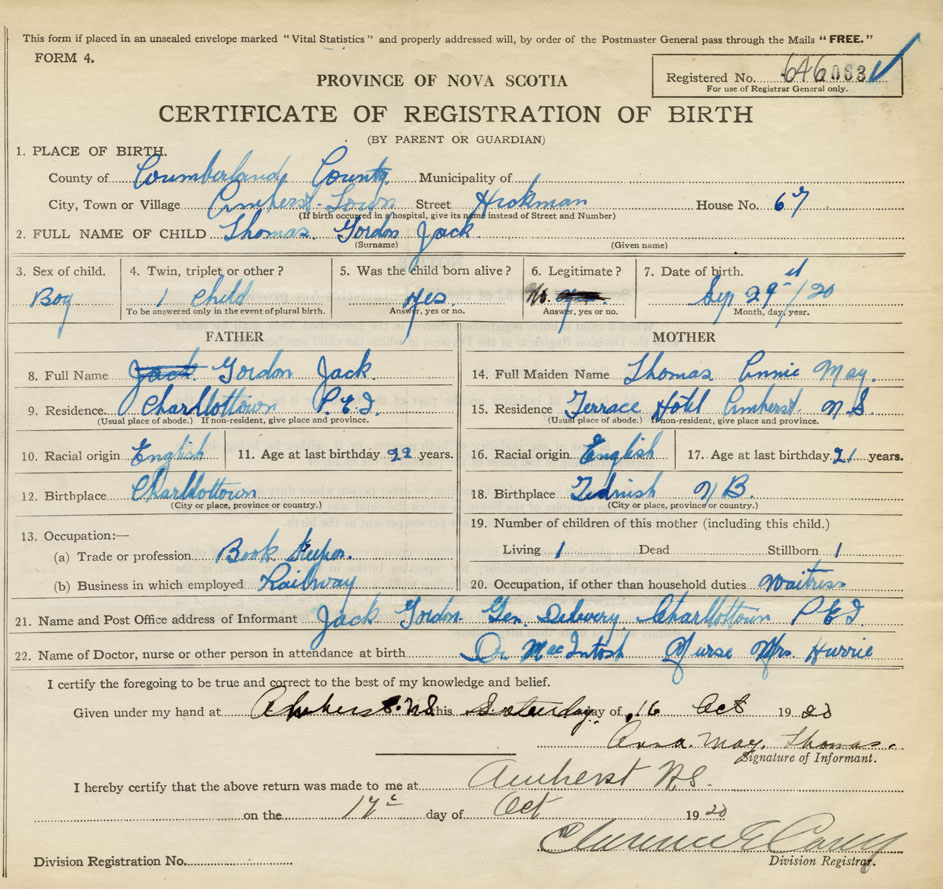 This form if placed in an unsealed envelope marked "Vital Statistics" and properly addressed will, by order of the Postmaster General pass through the Mails "FREE."
FORM 4.
Registered No. 646063
For use of Registrar General only.
PROVINCE OF NOVA SCOTIA
CERTIFICATE OF REGISTRATION OF BIRTH
(BY PARENT OR GUARDIAN)
1. PLACE OF BIRTH.
County of Coumberland County Municipality of
City, Town or Village Amherst Town Street Hickman House No. 67
(If birth occurred in hospital, give its name instead of Street and Number)
2. FULL NAME OF CHILD Thomas Gordon Jack
(Surname) (Given name)
3. Sex of child. 4. Twin, triplet or other? 5. Was the child born alive? 6. Legitimate? 7. Date of birth.
Boy 1 Child Yes. No. Sep 29 /20
To be answered only in the event of plural birth. Answer, yes or no. Answer, yes or no. Month, day, year.
FATHER MOTHER
8. Full Name Jack Gordon Jack. 14. Full Maiden Name Thomas Annie May.
9. Residence Charllottown P.E.I. 15. Residence Terrace Hotel Amherst N.S
(Usual place of abode.) If non-resident, give place and province. (Usual place of abode.) If non-resident, give place and province.
10. Racial origin English 11. Age at last birthday 22 years. 16. Racial origin English 17. Age at last birthday 21 years.
12. Birthplace Charllottown 18. Birthplace Tidnish N B.
(City or place, province or country.) (City or place, province or country.)
13. Occupation:— 19. Number of children of this mother (including this child.)
(a) Trade or profession Book Keeper. Living 1 Dead Stillborn 1
(b) Business in which employed Railway 20. Occupation, if other than household duties Waitriss
21. Name and Post Office address of Informant Jack Gordon Gen. Delivery Charllottown P E I
22. Name of Doctor, nurse or other person in attendance at birth Dr MacIntosh Nurse Mrs. Hurrie
I certify the foregoing to be true and correct to the best of my knowledge and belief.
Given under my hand at Amherst. N.S. this Saturday day of 16 Oct 1920
Anna. May. Thomas.
Signature of Informant.
I hereby certify that the above return was made to me at Amherst N.S.
on the 17 day of Oct 1920
Division Registration No. Division Registrar.